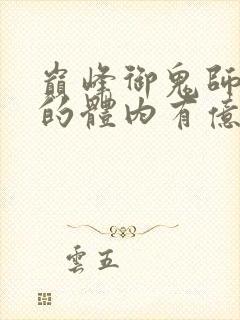 巔峰御鬼師
的體內有億
雲五